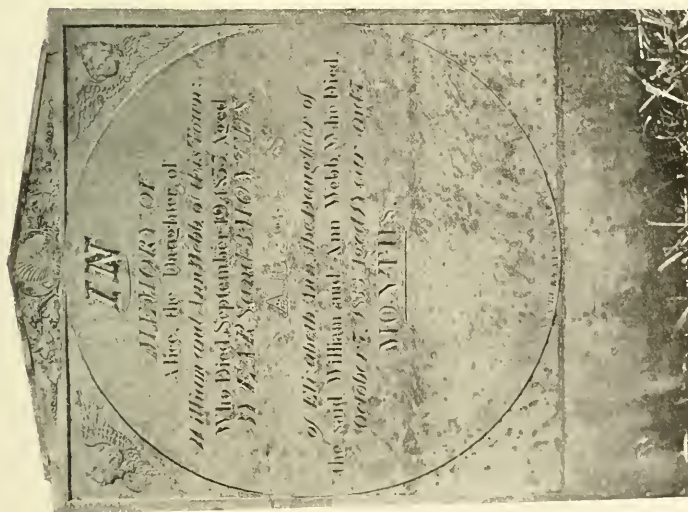 IN
MEMORY OF
Alice, the Daughter of
William and Ann Webb of this Town:
Who Died September 19, Aged
YEARS and MONTHS
ALSO
of Elizabeth Ann the Daughter of
the said William and Ann Webb, Who Died,
October 7, Aged 1 Year and
MONTHS.